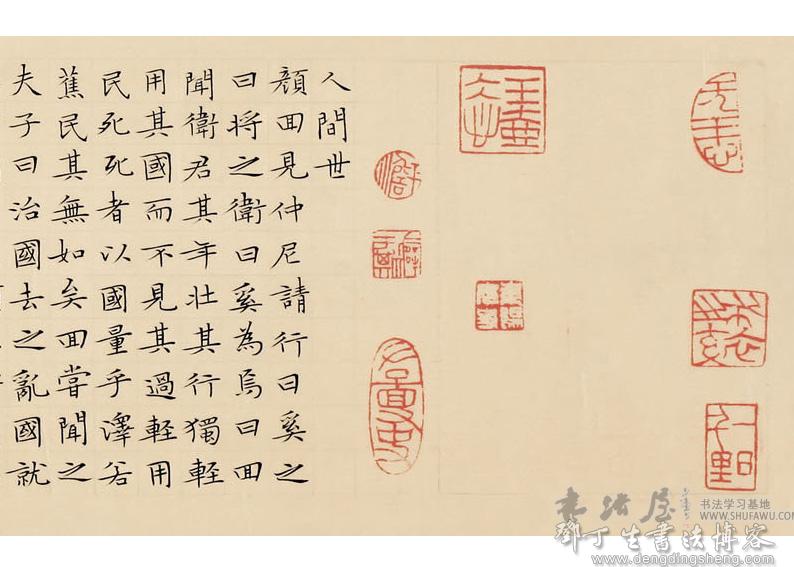 人間世
顏回見仲尼請行曰奚之
曰將之衛曰奚為焉曰回
聞衛君其年壯其行獨輕
用其國而不見其過輕用
民死死者以國量乎澤若
蕉民其無如矣回嘗聞之
夫子曰治國去之亂國就
书法屋
书法学习基地
WWW.SHUFAWU.COM
鄧丁生書法博客
www.dengdingsheng.com